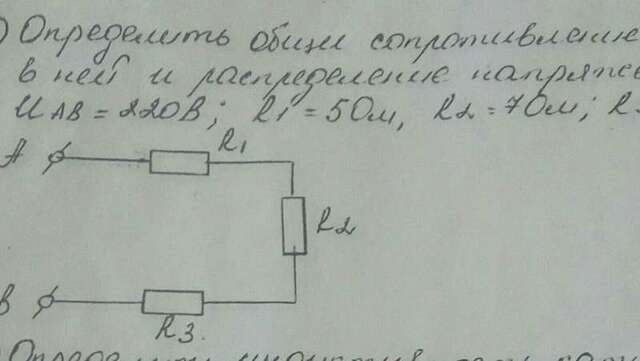 ) Определить общи сопротивление
в ней и распределение напряже
UAB = 220В; R1 = 5Ом, R2 = 7Ом; R
A
R1
R2
B
R3.